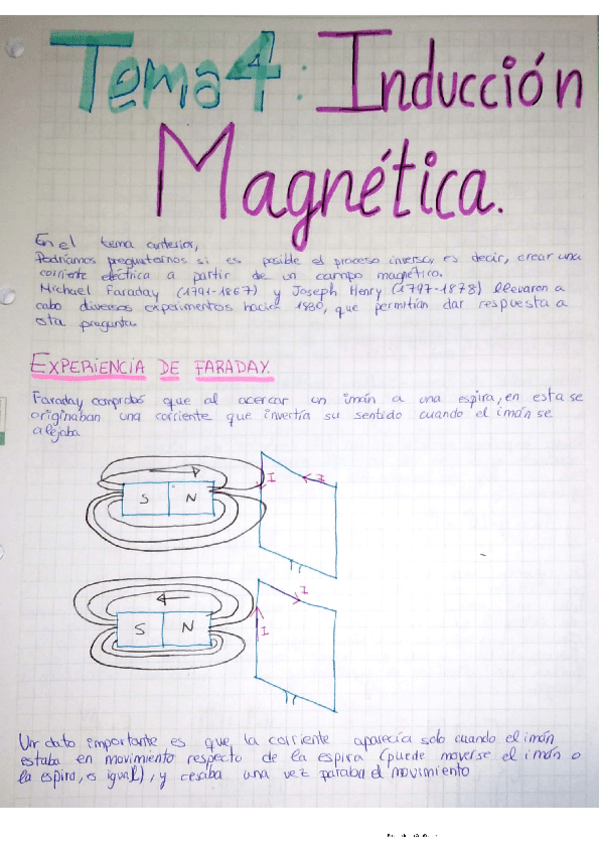 Tema 4: Inducción
Magnética.
En el tema anterior,
Podríamos preguntarnos si es posible el proceso inverso, es decir, crear una
corriente eléctrica a partir de un campo magnético.
Michael Faraday (1791-1867) y Joseph Henry (1797-1878) llevaron a
cabo diversos experimentos hacia 1830, que permitían dar respuesta a
esta pregunta.
EXPERIENCIA DE FARADAY.
Faraday comprobó que al acercar un imán a una espira, en esta se
originaban una corriente que invertía su sentido cuando el imán se
alejaba
I
I
S N
I
S N
I
Un dato importante es que la corriente aparecía solo cuando el imán
estaba en movimiento respecto de la espira (puede moverse el imán o
la espira, es igual), y cesaba una vez paraba el movimiento